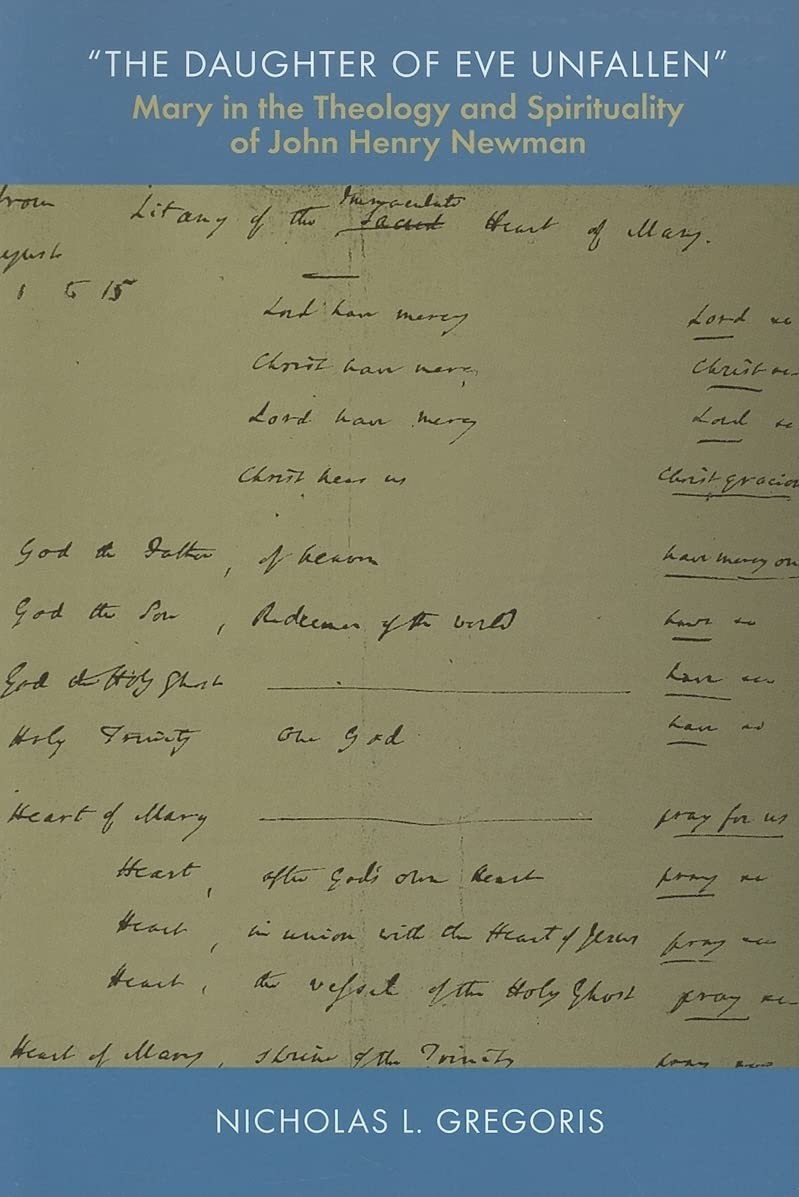 “THE DAUGHTER OF EVE UNFALLEN”
Mary in the Theology and Spirituality
of John Henry Newman
from Litany of the Immaculate Sacred Heart of Mary.
1 to 15
Lord have mercy Lord &c
Christ have mercy Christ &c
Lord have mercy Lord &c
Christ hear us Christ gracio
God the Father, of heaven have mercy on
God the Son, Redeemer of the world have &c
God the Holy Ghost have &c
Holy Trinity One God have &c
Heart of Mary pray for us
Heart, after God's own heart pray &c
Heart, in union with the Heart of Jesus pray &c
Heart, the vessel of the Holy Ghost pray &c
Heart of Mary, shrine of the Trinity pray &c
NICHOLAS L. GREGORIS